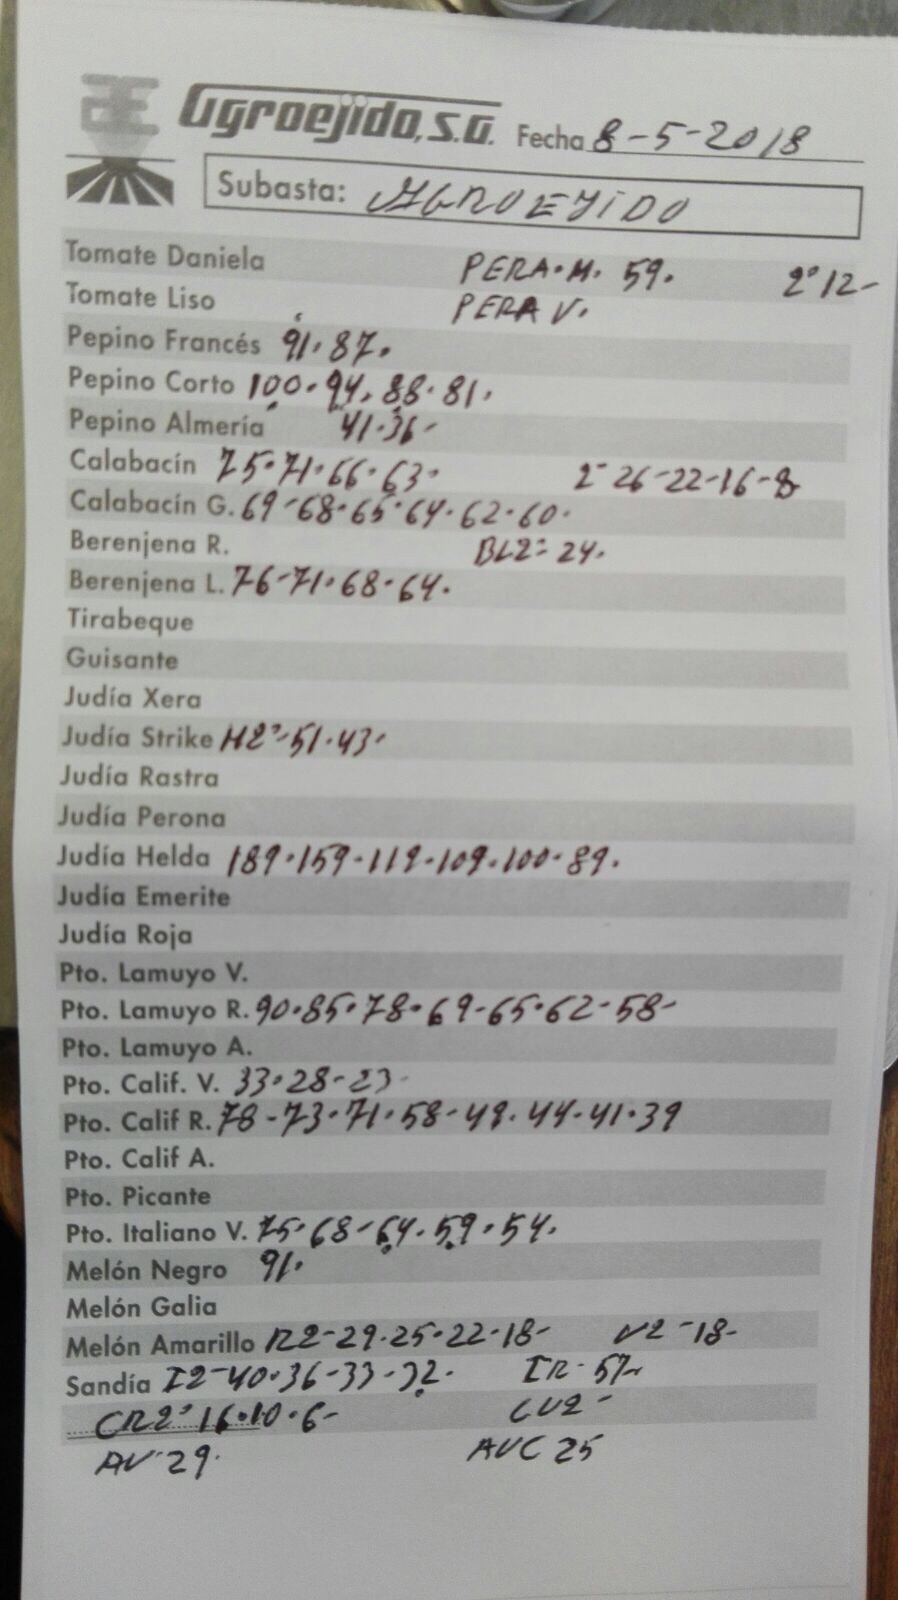 Agroejido, S.A. Fecha 8-5-2018
Subasta: AGROEJIDO
Tomate Daniela PERA.M. 59. 2º 12-
Tomate Liso PERA V.
Pepino Francés 91.87.
Pepino Corto 100.94.88.81.
Pepino Almería 41.36-
Calabacín 75.71.66.63. 2-26-22-16-8
Calabacín G. 69-68.65.64.62.60.
Berenjena R. BL2=24.
Berenjena L. 76-71.68-64.
Tirabeque
Guisante
Judía Xera
Judía Strike H2º-51.43.
Judía Rastra
Judía Perona
Judía Helda 189.159-119-109.100.89.
Judía Emerite
Judía Roja
Pto. Lamuyo V.
Pto. Lamuyo R. 90.85.78.69-65.62-58-
Pto. Lamuyo A.
Pto. Calif. V. 33.28-23-
Pto. Calif R. 78-73.71.58-49.44-41.39
Pto. Calif A.
Pto. Picante
Pto. Italiano V. 75.68-64.59.54.
Melón Negro 91.
Melón Galia
Melón Amarillo R2-29.25.22-18- V2-18-
Sandía I2-40.36-33-32. IR-57-
CR2º 16.10.6- CV2-
AV 29. AVC 25